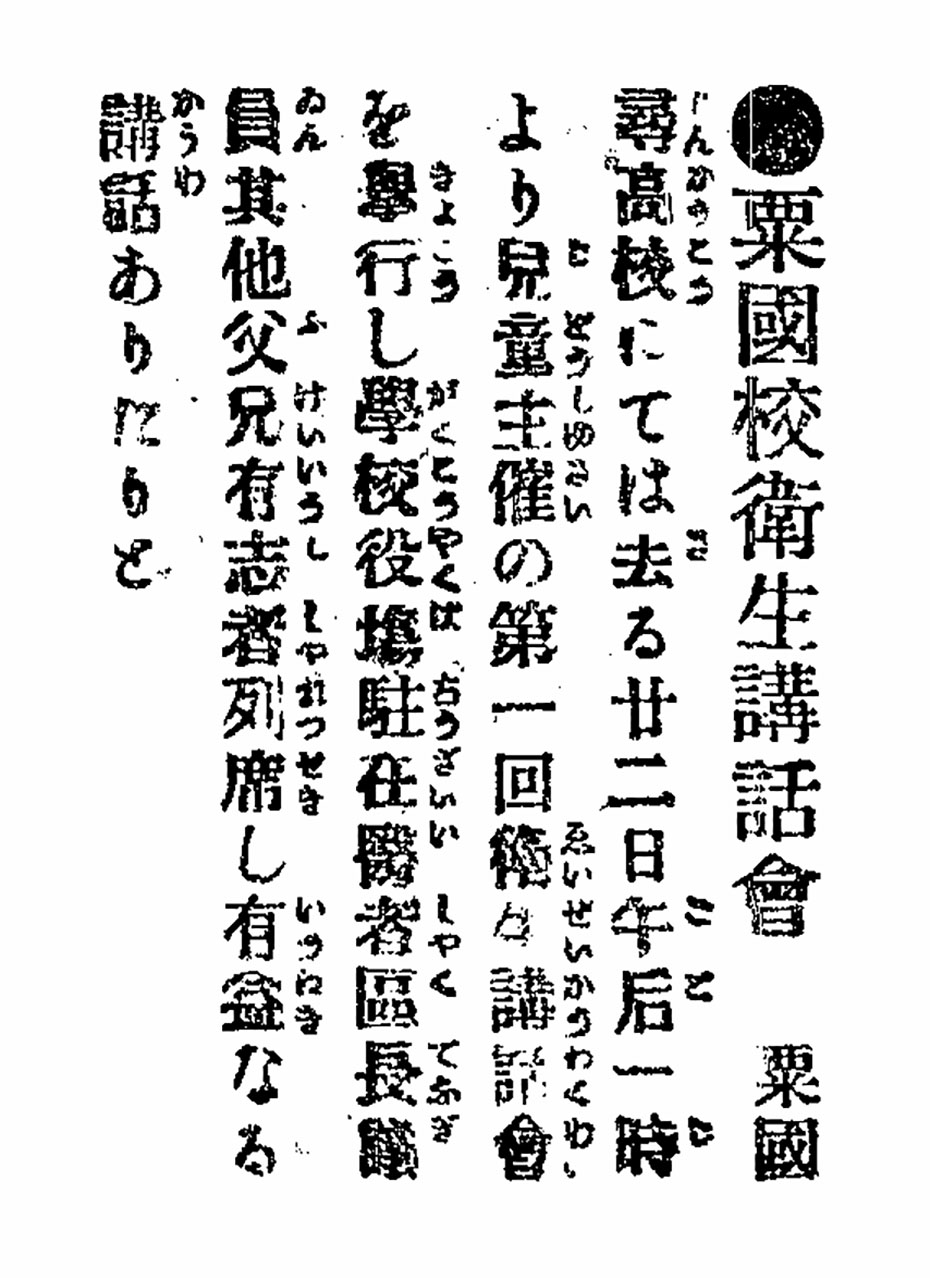 ●粟國校衛生講話會　粟國
尋高校にては去る廿二日午后一時
より兒童主催の第一回衛生講話會
を擧行し學校役塲駐在醫者區長議
員其他父兄有志者列席し有益なる
講話ありたりと